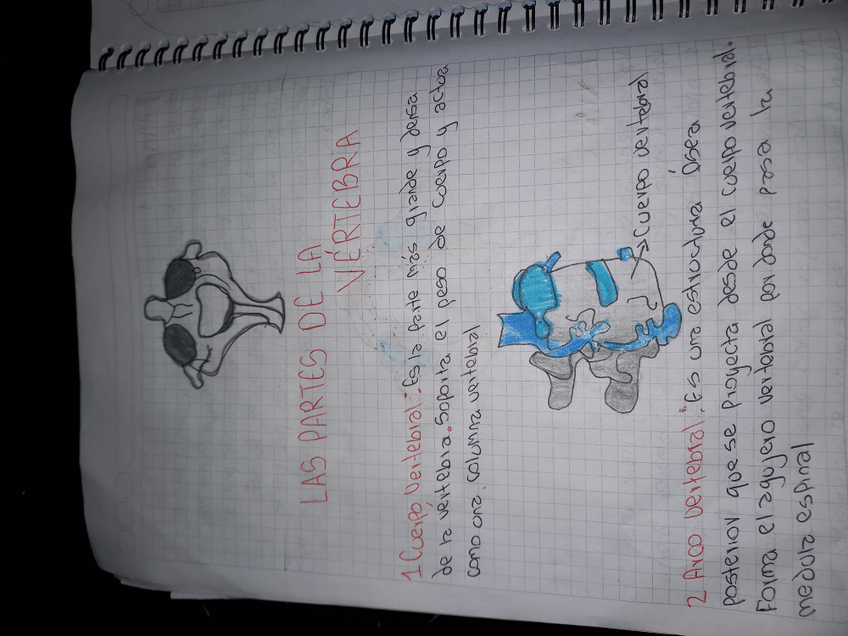 LAS PARTES DE LA
VÉRTEBRA
1 Cuerpo Vertebral: Es la parte más grande y densa
de la vértebra. Soporta el peso de cuerpo y actoa
como ona. columna vertebral
Cuerpo vertebral
2 Arco Vertebral: Es una estructura Ósea
posterior que se proyecta desde el cuerpo vertebral.
Forma el agujero vertebral por donde pasa la
medula espinal